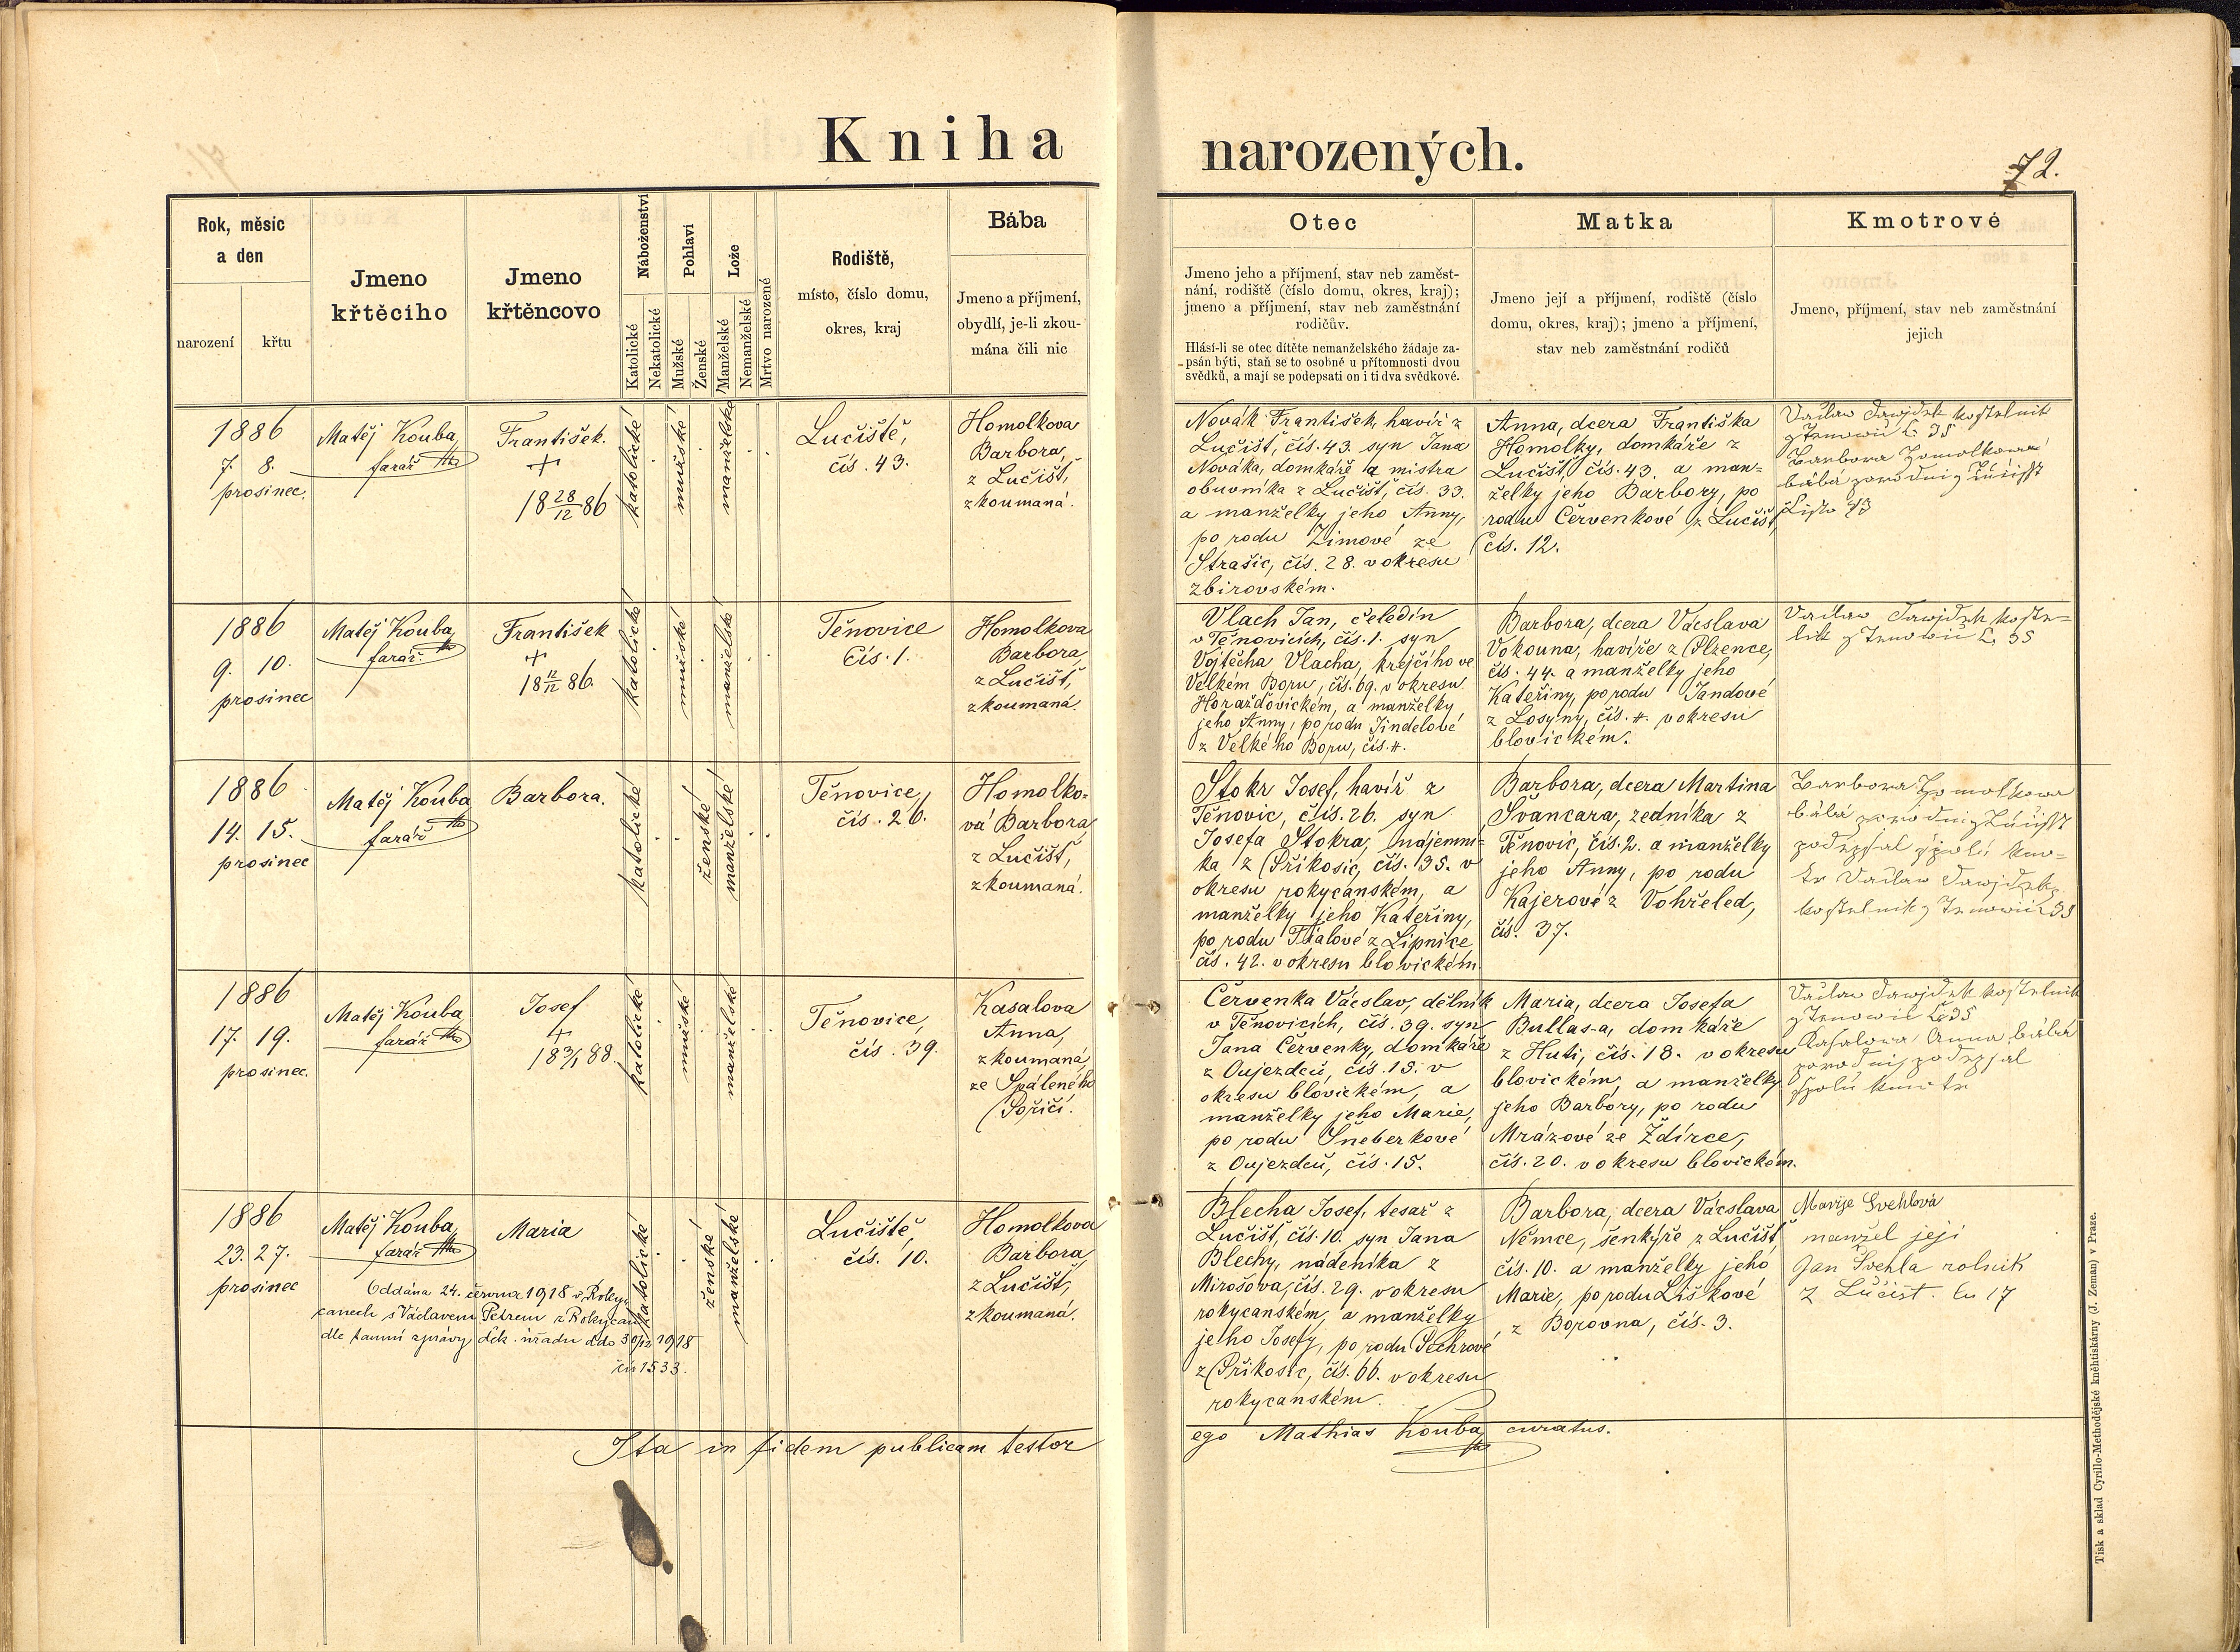 Kniha narozených.
72.
Rok, měsíc
a den
narození
křtu
Jmeno
křtěcího
Jmeno
křtěncovo
Náboženství
Katolické
Nekatolické
Pohlaví
Mužské
Ženské
Lože
Manželské
Nemanželské
Mrtvo narozené
Rodiště,
místo, číslo domu,
okres, kraj
Bába
Jmeno a příjmení,
obydlí, je-li zkou-
mána čili nic
Otec
Jmeno jeho a příjmení, stav neb zaměst-
nání, rodiště (číslo domu, okres, kraj);
jmeno a příjmení, stav neb zaměstnání
rodičův.
Hlásí-li se otec dítěte nemanželského žádaje za-
psán býti, staň se to osobně u přítomnosti dvou
svědků, a mají se podepsati on i ti dva svědkové.
Matka
Jmeno její a příjmení, rodiště (číslo
domu, okres, kraj); jmeno a příjmení,
stav neb zaměstnání rodičů
Kmotrové
Jmeno, příjmení, stav neb zaměstnání
jejich
1886
7. 8.
prosinec.
Matěj Kouba,
farář
František.
+
18 28/12 86
katolické
mužské
manželské
Lučiště,
čís. 43.
Homolkova
Barbora,
z Lučišť,
zkoumaná.
Novák František, havíř z
Lučišť, čís. 43. syn Jana
Nováka, domkáře a mistra
obuvníka z Lučišť, čís. 33.
a manželky jeho Anny,
po rodu Zimové ze
Strašic, čís. 28. v okresu
zbirovském.
Anna, dcera Františka
Homolky, domkáře z
Lučišť, čís. 43. a man-
želky jeho Barbory, po
rodu Červenkové z Lučišť,
čís. 12.
Václav kostelnik
z Tenowic č. 35
Barbora Homolkowá
bába porodni z Lučišt
Čislo 43
1886
9. 10.
prosinec
Matěj Kouba,
farář.
František
+
18 12/12 86.
katolické
mužské
manželské
Těnovice
Čís. 1.
Homolkova
Barbora,
z Lučišť,
zkoumaná.
Vlach Jan, čeledín
v Těnovicích, čís. 1. syn
Vojtěcha Vlacha, krejčího ve
Velkém Boru, čís. 69. v okresu
Horažďovickém, a manželky
jeho Anny, po rodu Jindelové
z Velkého Boru, čís. 4.
Barbora, dcera Václava
Vokouna, havíře z Plzence,
čís. 44. a manželky jeho
Kateřiny, po rodu Jandové
z Losyny, čís. 4. v okresu
blovickém.
Václav koste-
lik z Tenowic č. 35
1886
14. 15.
prosinec
Matěj Kouba
farář
Barbora.
katolické
ženské
manželské
Těnovice,
čís. 26.
Homolko-
vá Barbora,
z Lučišť,
zkoumaná.
Stokr Josef, havíř z
Těnovic, čís. 26. syn
Josefa Stokra, nájemní-
ka z Příkosic, čís. 35. v
okresu rokycanském, a
manželky jeho Kateřiny,
po rodu Fialové z Lipnice,
čís. 42. v okresu blovickém.
Barbora, dcera Martina
Švancara, zedníka z
Těnovic, čís. 2. a manželky
jeho Anny, po rodu
Kajerové z Vohřeled,
čís. 37.
Barbora Homolkowa
bába porodni z Lučišt
podepsal spolu kmo-
tr Václav
kostelnik z Tenowic 35
1886
17. 19.
prosinec.
Matěj Kouba
farář
Josef
+
18 3/1 88.
katolické
mužské
manželské
Těnovice,
čís. 39.
Kasalova
Anna,
zkoumaná
ze Spáleného
Poříčí.
Červenka Václav, dělník
v Těnovicích, čís. 39. syn
Jana Červenky, domkáře
z Oujezdců, čís. 15. v
okresu blovickém, a
manželky jeho Marie,
po rodu Šneberkové
z Oujezdců, čís. 15.
Maria, dcera Josefa
Bullas-a, domkáře
z Huti, čís. 18. v okresu
blovickém, a manželky
jeho Barbory, po rodu
Mrázové ze Ždírce,
čís. 20. v okresu blovickém.
Václav kostelnik
z Tenowic č 35
Kasalowa Anna bába
porodni podepsal
spolu kmotr
1886
23. 27.
prosinec
Matěj Kouba,
farář
Maria
katolické
ženské
manželské
Lučiště,
čís. 10.
Homolkova
Barbora
z Lučišť,
zkoumaná.
Oddána 24. června 1918 v Roky-
canech s Václavem Petrem z Rokycan
dle tamní zprávy děk. úřadu ddo 30/12 1918
čís 1533.
Blecha Josef, tesař z
Lučišť, čís. 10. syn Jana
Blechy, nádeníka z
Mirošova, čís. 29. v okresu
rokycanském, a manželky
jeho Josefy, po rodu Sechrové
z Příkosic, čís. 66. v okresu
rokycanském.
Barbora, dcera Václava
Němce, šenkýře z Lučišť
čís. 10. a manželky jeho
Marie, po rodu Liškové
z Borovna, čís. 3.
Marije Svehlová
manžel jeji
Jan Švehla rolnik
z Lučišt. čn 17
Ita in fidem publicam testor
ego Mathias Kouba, curatus.
Tisk a sklad Cyrillo-Methodějské kněhtiskárny (J. Zeman) v Praze.